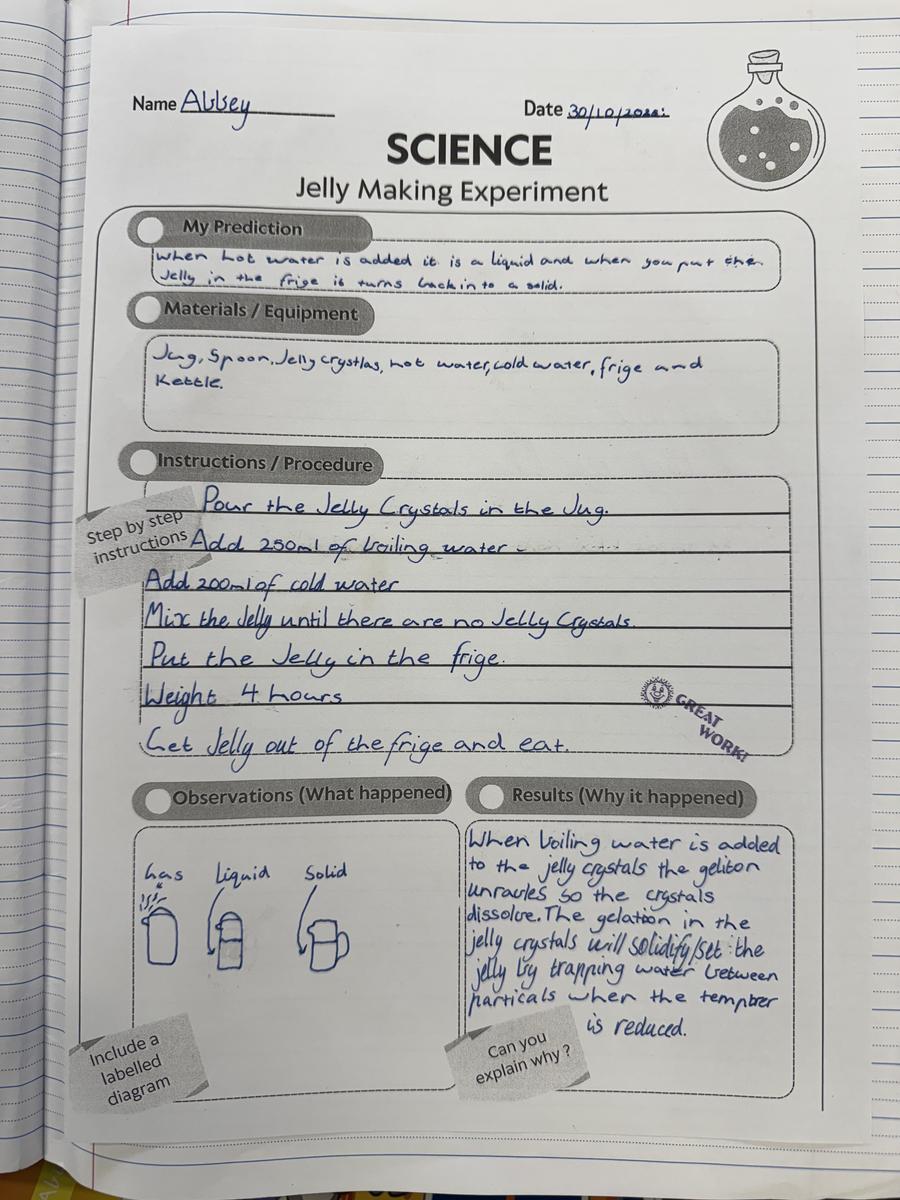 Name Abbey
Date 30/10/202
SCIENCE
Jelly Making Experiment
My Prediction
When hot water is added it is a liquid and when you put the
Jelly in the frige it turns back in to a solid.
Materials / Equipment
Jug, Spoon, Jelly crystlas, hot water, cold water, frige and
Kettle.
Instructions / Procedure
Step by step
instructions
Pour the Jelly Crystals in the Jug.
Add 250ml of boiling water
Add 200ml of cold water
Mix the Jelly until there are no Jelly Crystals.
Put the Jelly in the frige.
Weight 4 hours
Get Jelly out of the frige and eat.
GREAT
WORK!
Observations (What happened)
Gas Liquid Solid
Include a
labelled
diagram
Results (Why it happened)
When boiling water is added
to the jelly crystals the geliton
unravles so the crystals
dissolve. The gelation in the
jelly crystals will solidify/set the
jelly by trapping water between
particals when the temptrer
is reduced.
Can you
explain why ?